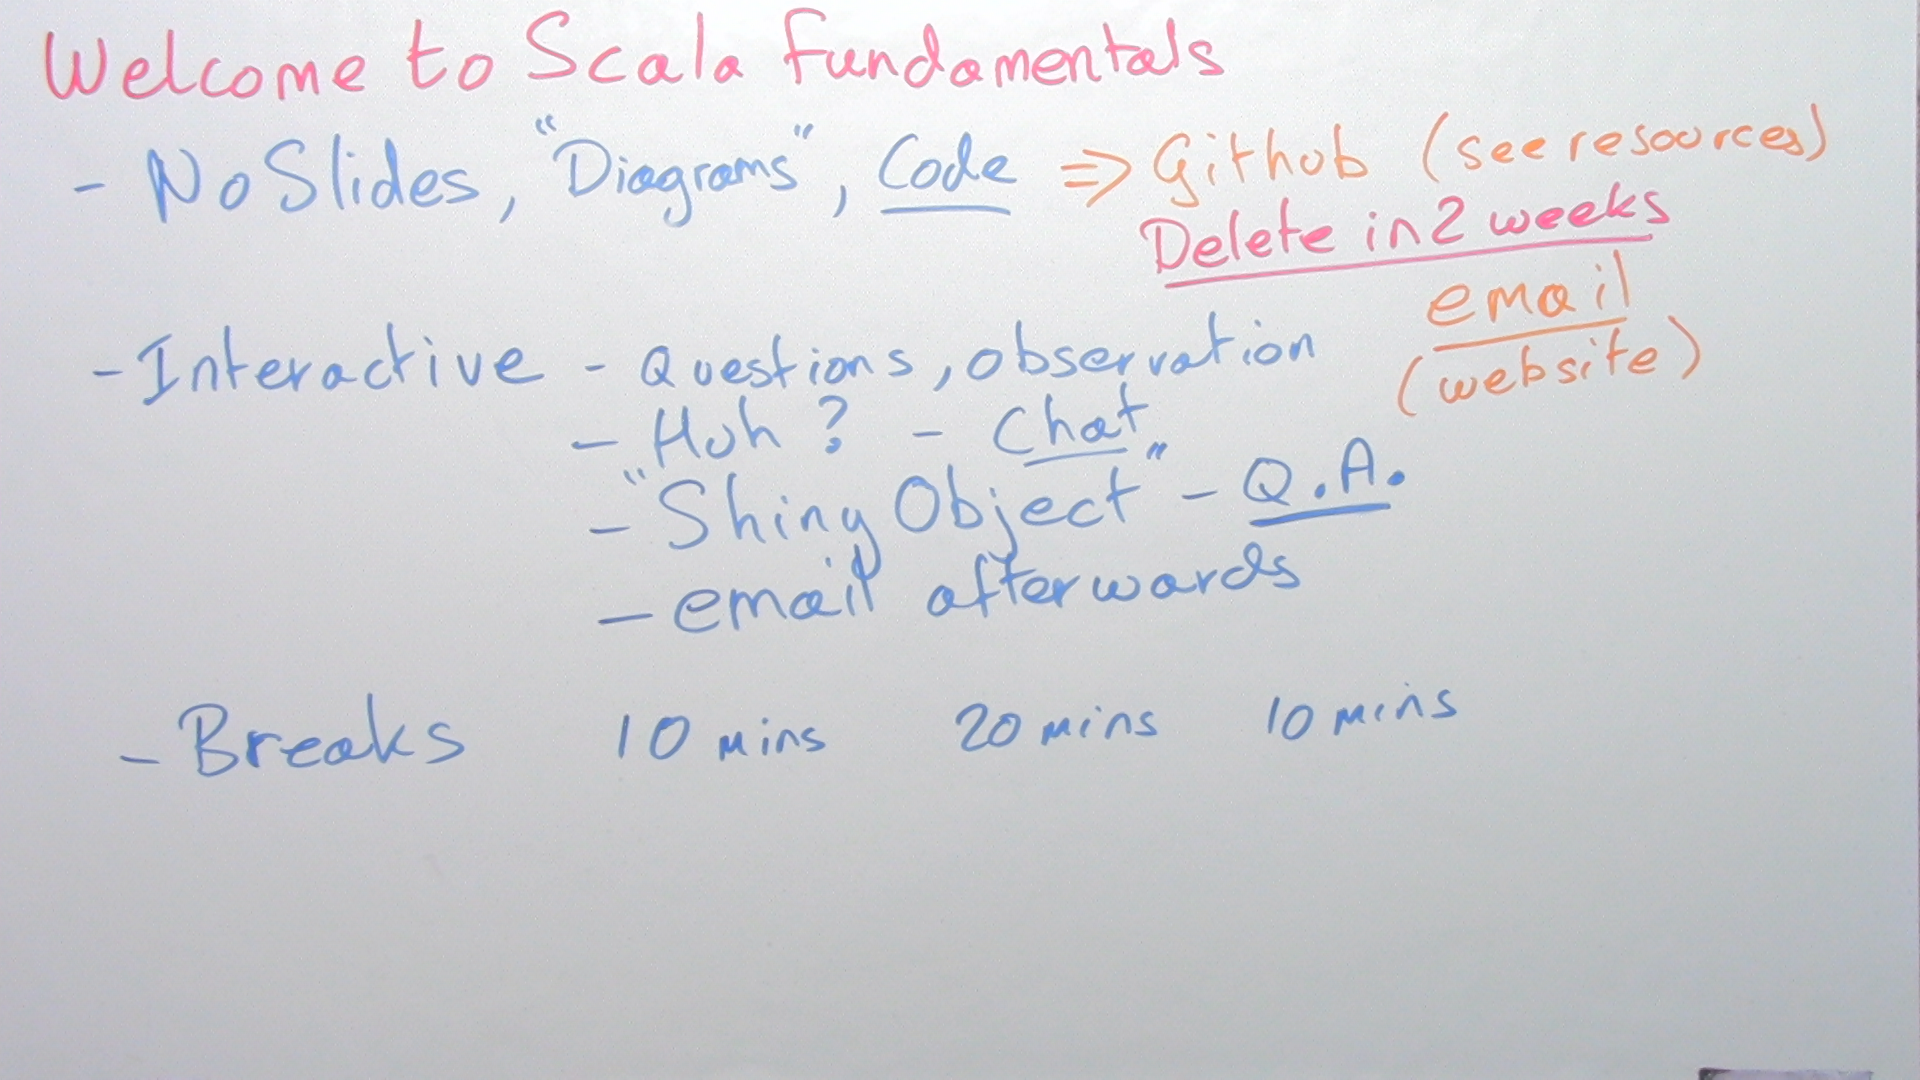 Welcome to Scala Fundamentals
- No Slides, "Diagrams", Code => Github (see resources)
Delete in 2 weeks
email
(website)
- Interactive - Questions, observation
- Huh ? - Chat
- "Shiny Object" - Q.A.
- email afterwards
- Breaks 10 mins 20 mins 10 mins